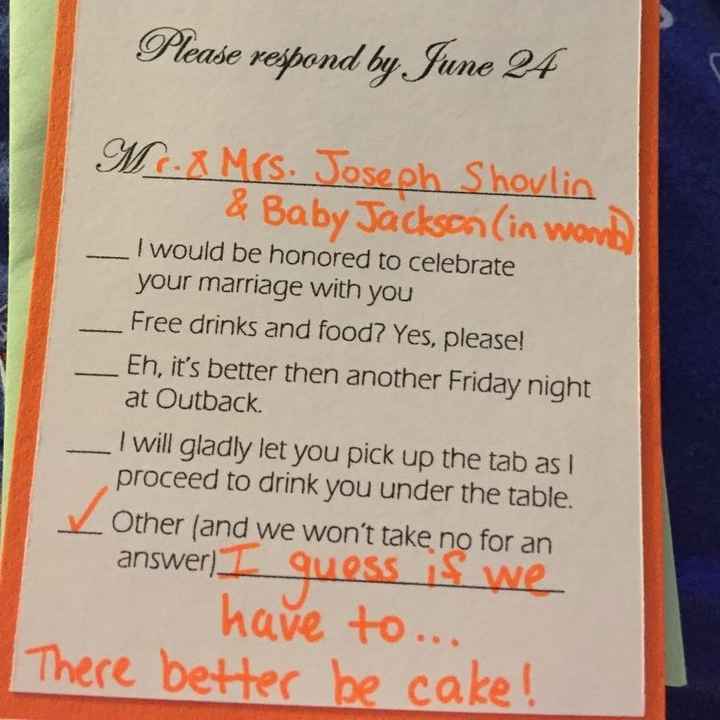 Please respond by June 24
Mr. & Mrs. Joseph Shovlin
& Baby Jackson (in womb)
___ I would be honored to celebrate
your marriage with you
___ Free drinks and food? Yes, please!
___ Eh, it's better then another Friday night
at Outback.
___ I will gladly let you pick up the tab as I
proceed to drink you under the table.
_✓_ Other (and we won't take no for an
answer) I guess if we
have to...
There better be cake!